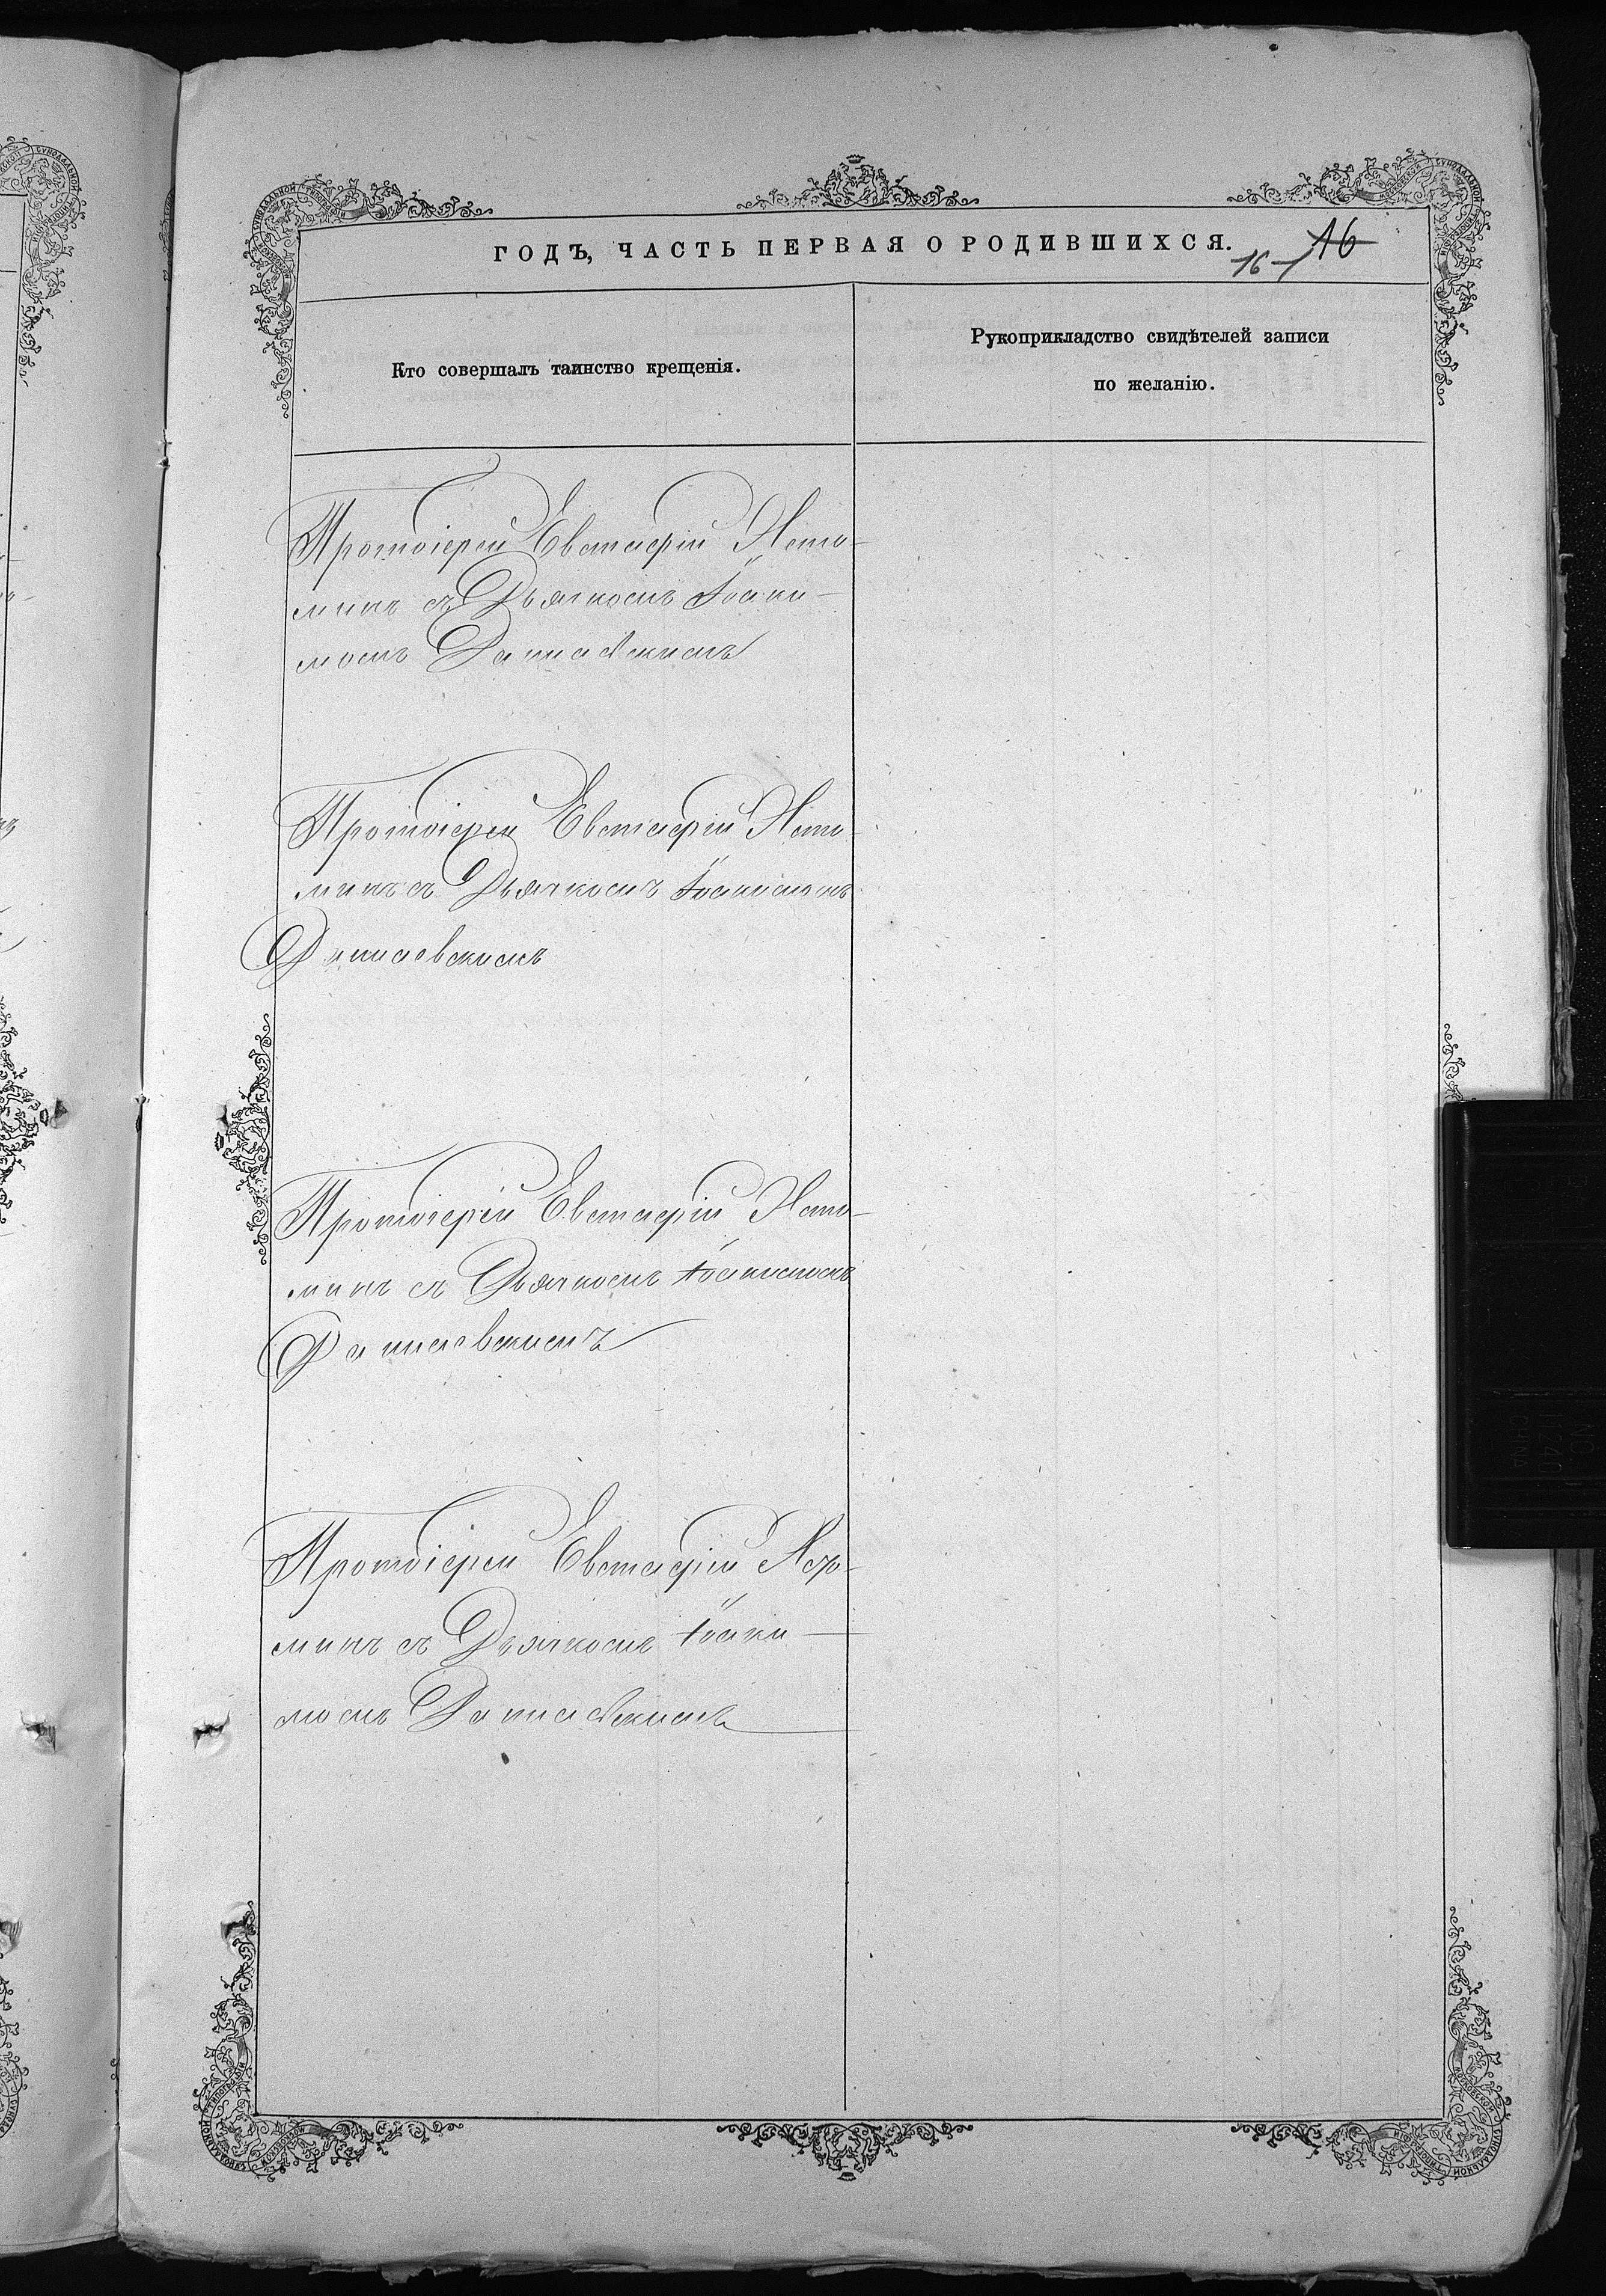 ГОДЪ, ЧАСТЬ ПЕРВАЯ О РОДИВШИХСЯ.
16 16
Кто совершалъ таинство крещенія.
Рукоприкладство свидѣтелей записи
по желанію.
Протоіерей Евстафій
минъ съ Дьячкомъ Іоаки-
момъ Даниевскимъ
Протоіерей Евстафій
минъ съ Дьячкомъ Іоакимомъ
Даниевскимъ
Протоіерей Евстафій
минъ съ Дьячкомъ Іоакимомъ
Даниевскимъ
Протоіерей Евстафій
минъ съ Дьячкомъ Іоаки-
момъ Даниевскимъ